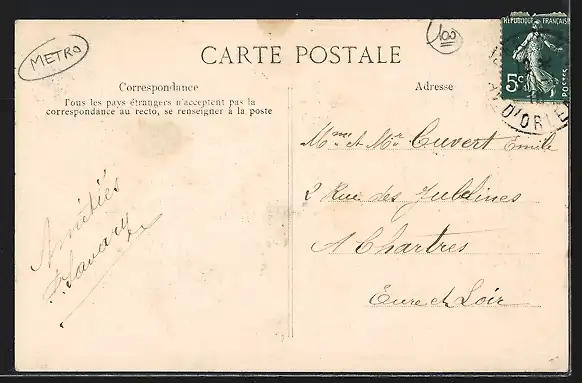 METRO
100
CARTE POSTALE
RÉPUBLIQUE FRANÇAISE
5c
POSTES
D'ORLE
Correspondance
Tous les pays étrangers n'acceptent pas la
correspondance au recto, se renseigner à la poste
Adresse
Mme et Mr Cuvert Emile
2 Rue des Jubelines
A Chartres
Eure et Loir
Amitiés